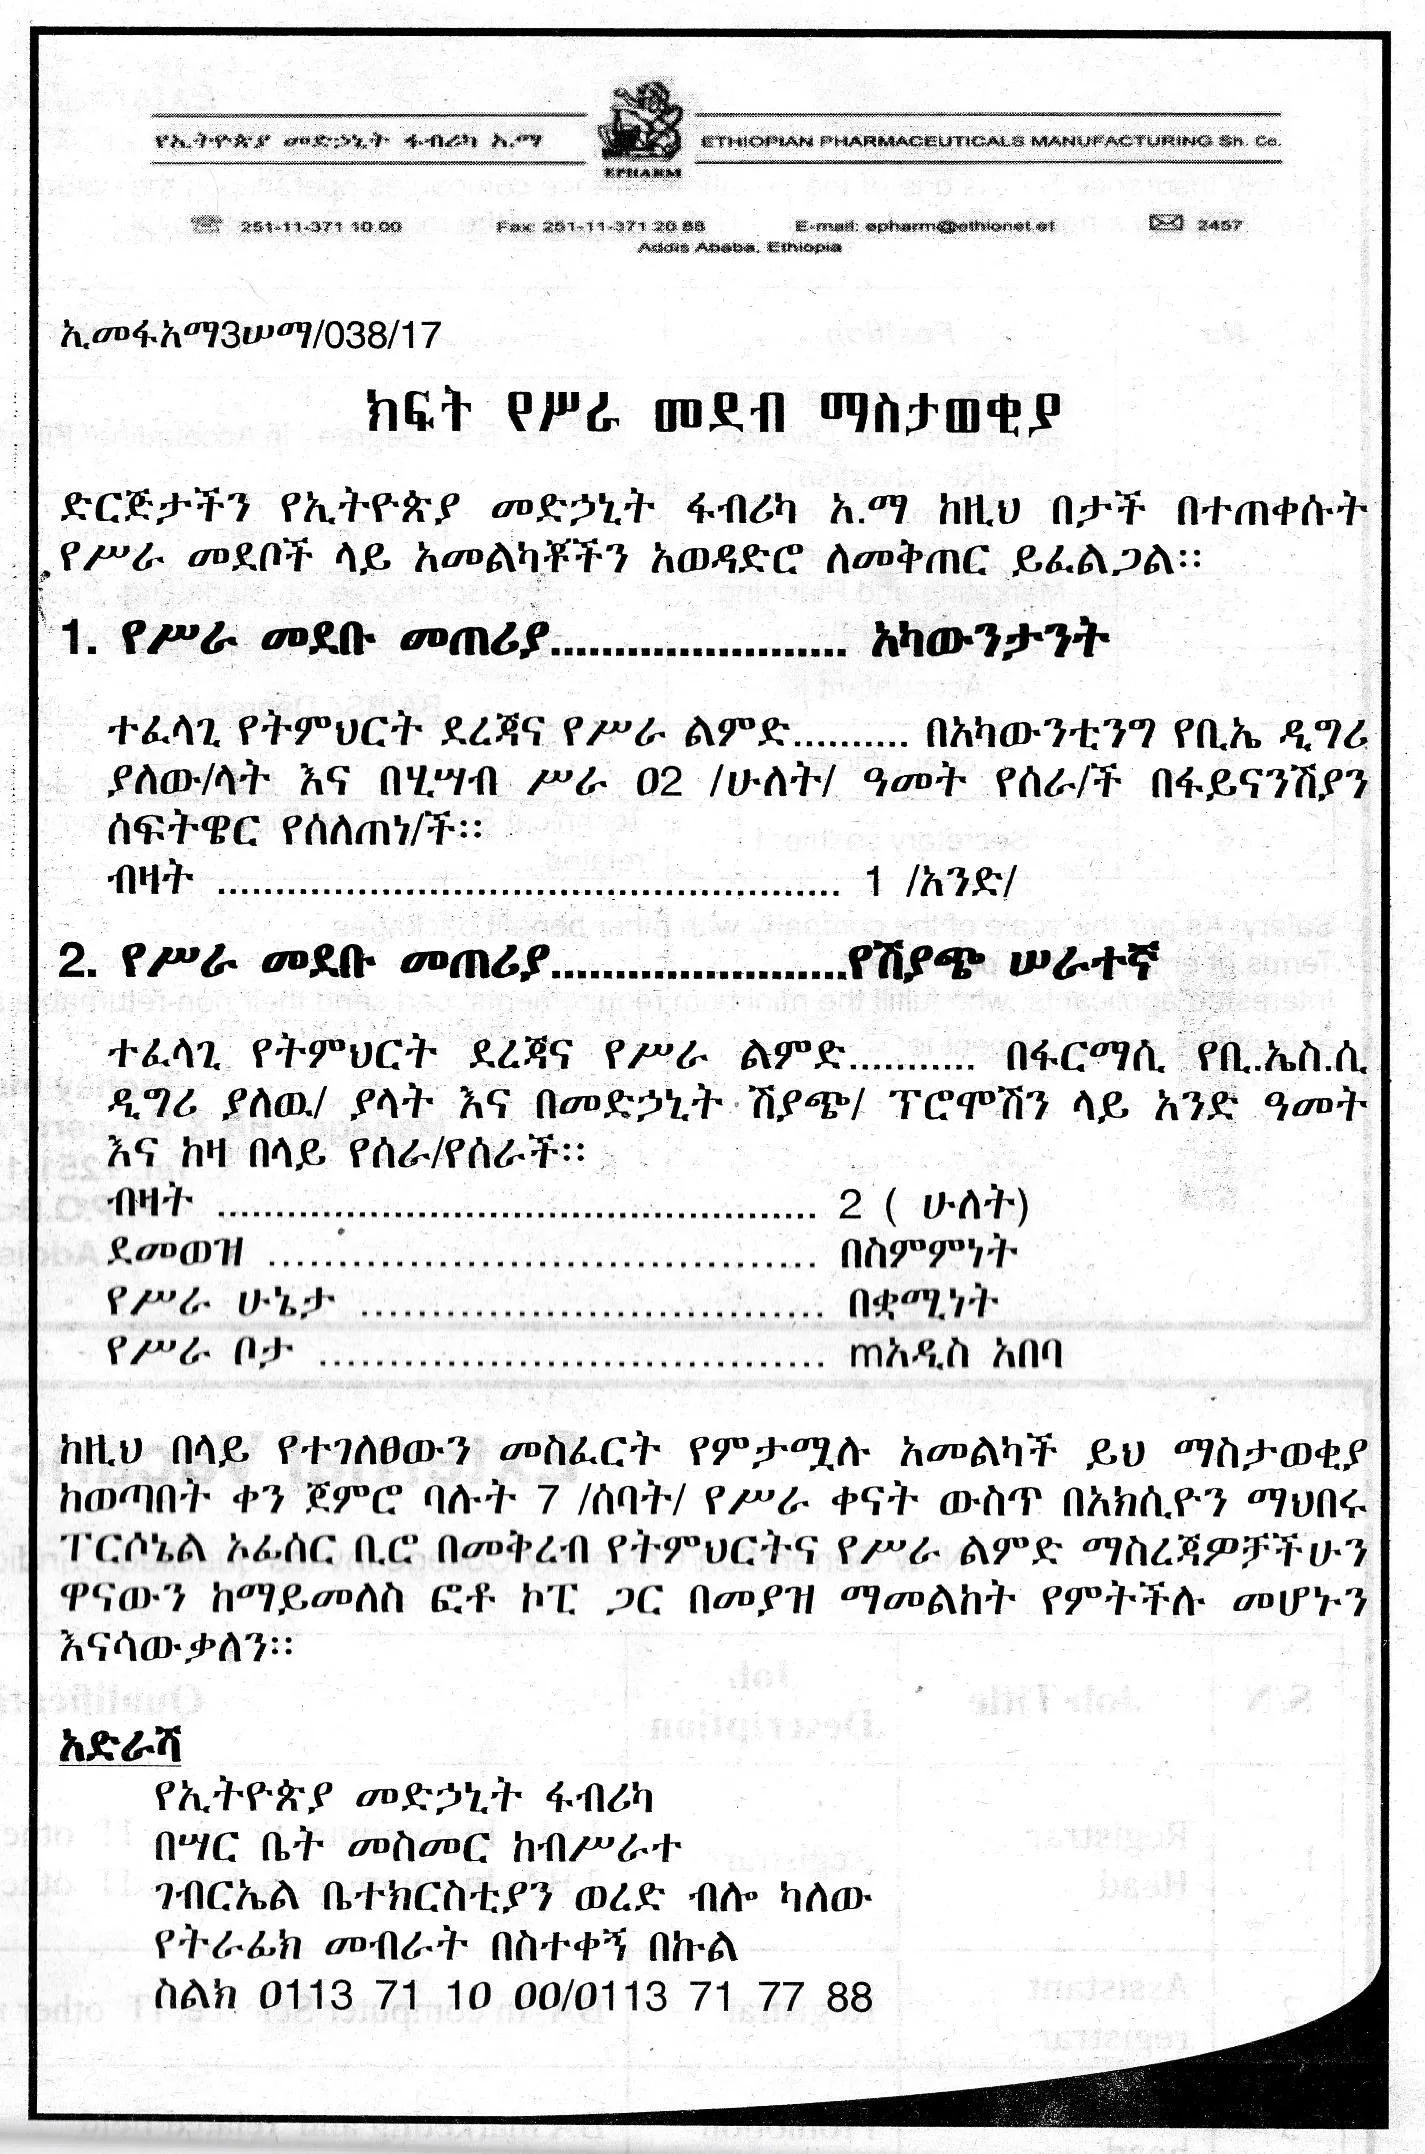 የኢትዮጵያ መድኃኒት ፋብሪካ አ.ማ
EPHARM
ETHIOPIAN PHARMACEUTICALS MANUFACTURING Sh. Co.
251-11-371 10 00 Fax: 251-11-371 20 88 E-mail: epharm@ethionet.et 2457
Addis Ababa, Ethiopia
ኢመፋአማ3ሠማ/038/17
ክፍት የሥራ መደብ ማስታወቂያ
ድርጅታችን የኢትዮጵያ መድኃኒት ፋብሪካ አ.ማ ከዚህ በታች በተጠቀሱት
የሥራ መደቦች ላይ አመልካቾችን አወዳድሮ ለመቅጠር ይፈልጋል፡፡
1. የሥራ መደቡ መጠሪያ....................... አካውንታንት
ተፈላጊ የትምህርት ደረጃና የሥራ ልምድ.......... በአካውንቲንግ የቢኤ ዲግሪ
ያለው/ላት እና በሂሣብ ሥራ 02 /ሁለት/ ዓመት የሰራ/ች በፋይናንሽያን
ሰፍትዌር የሰለጠነ/ች፡፡
ብዛት ..................................................... 1 /አንድ/
2. የሥራ መደቡ መጠሪያ.......................የሽያጭ ሠራተኛ
ተፈላጊ የትምህርት ደረጃና የሥራ ልምድ........... በፋርማሲ የቢ.ኤስ.ሲ
ዲግሪ ያለዉ/ ያላት እና በመድኃኒት ሽያጭ/ ፕሮሞሽን ላይ አንድ ዓመት
እና ከዛ በላይ የሰራ/የሰራች፡፡
ብዛት ................................................... 2 ( ሁለት)
ደመወዝ ....................................... በስምምነት
የሥራ ሁኔታ ................................. በቋሚነት
የሥራ ቦታ .................................... mአዲስ አበባ
ከዚህ በላይ የተገለፀውን መስፈርት የምታሟሉ አመልካች ይህ ማስታወቂያ
ከወጣበት ቀን ጀምሮ ባሉት 7 /ሰባት/ የሥራ ቀናት ውስጥ በአክሲዮን ማህበሩ
ፐርሶኔል ኦፊሰር ቢሮ በመቅረብ የትምህርትና የሥራ ልምድ ማስረጃዎቻችሁን
ዋናውን ከማይመለስ ፎቶ ኮፒ ጋር በመያዝ ማመልከት የምትችሉ መሆኑን
እናሳውቃለን፡፡
አድራሻ
የኢትዮጵያ መድኃኒት ፋብሪካ
በሣር ቤት መስመር ከብሥራተ
ገብርኤል ቤተክርስቲያን ወረድ ብሎ ካለው
የትራፊክ መብራት በስተቀኝ በኩል
ስልክ 0113 71 10 00/0113 71 77 88